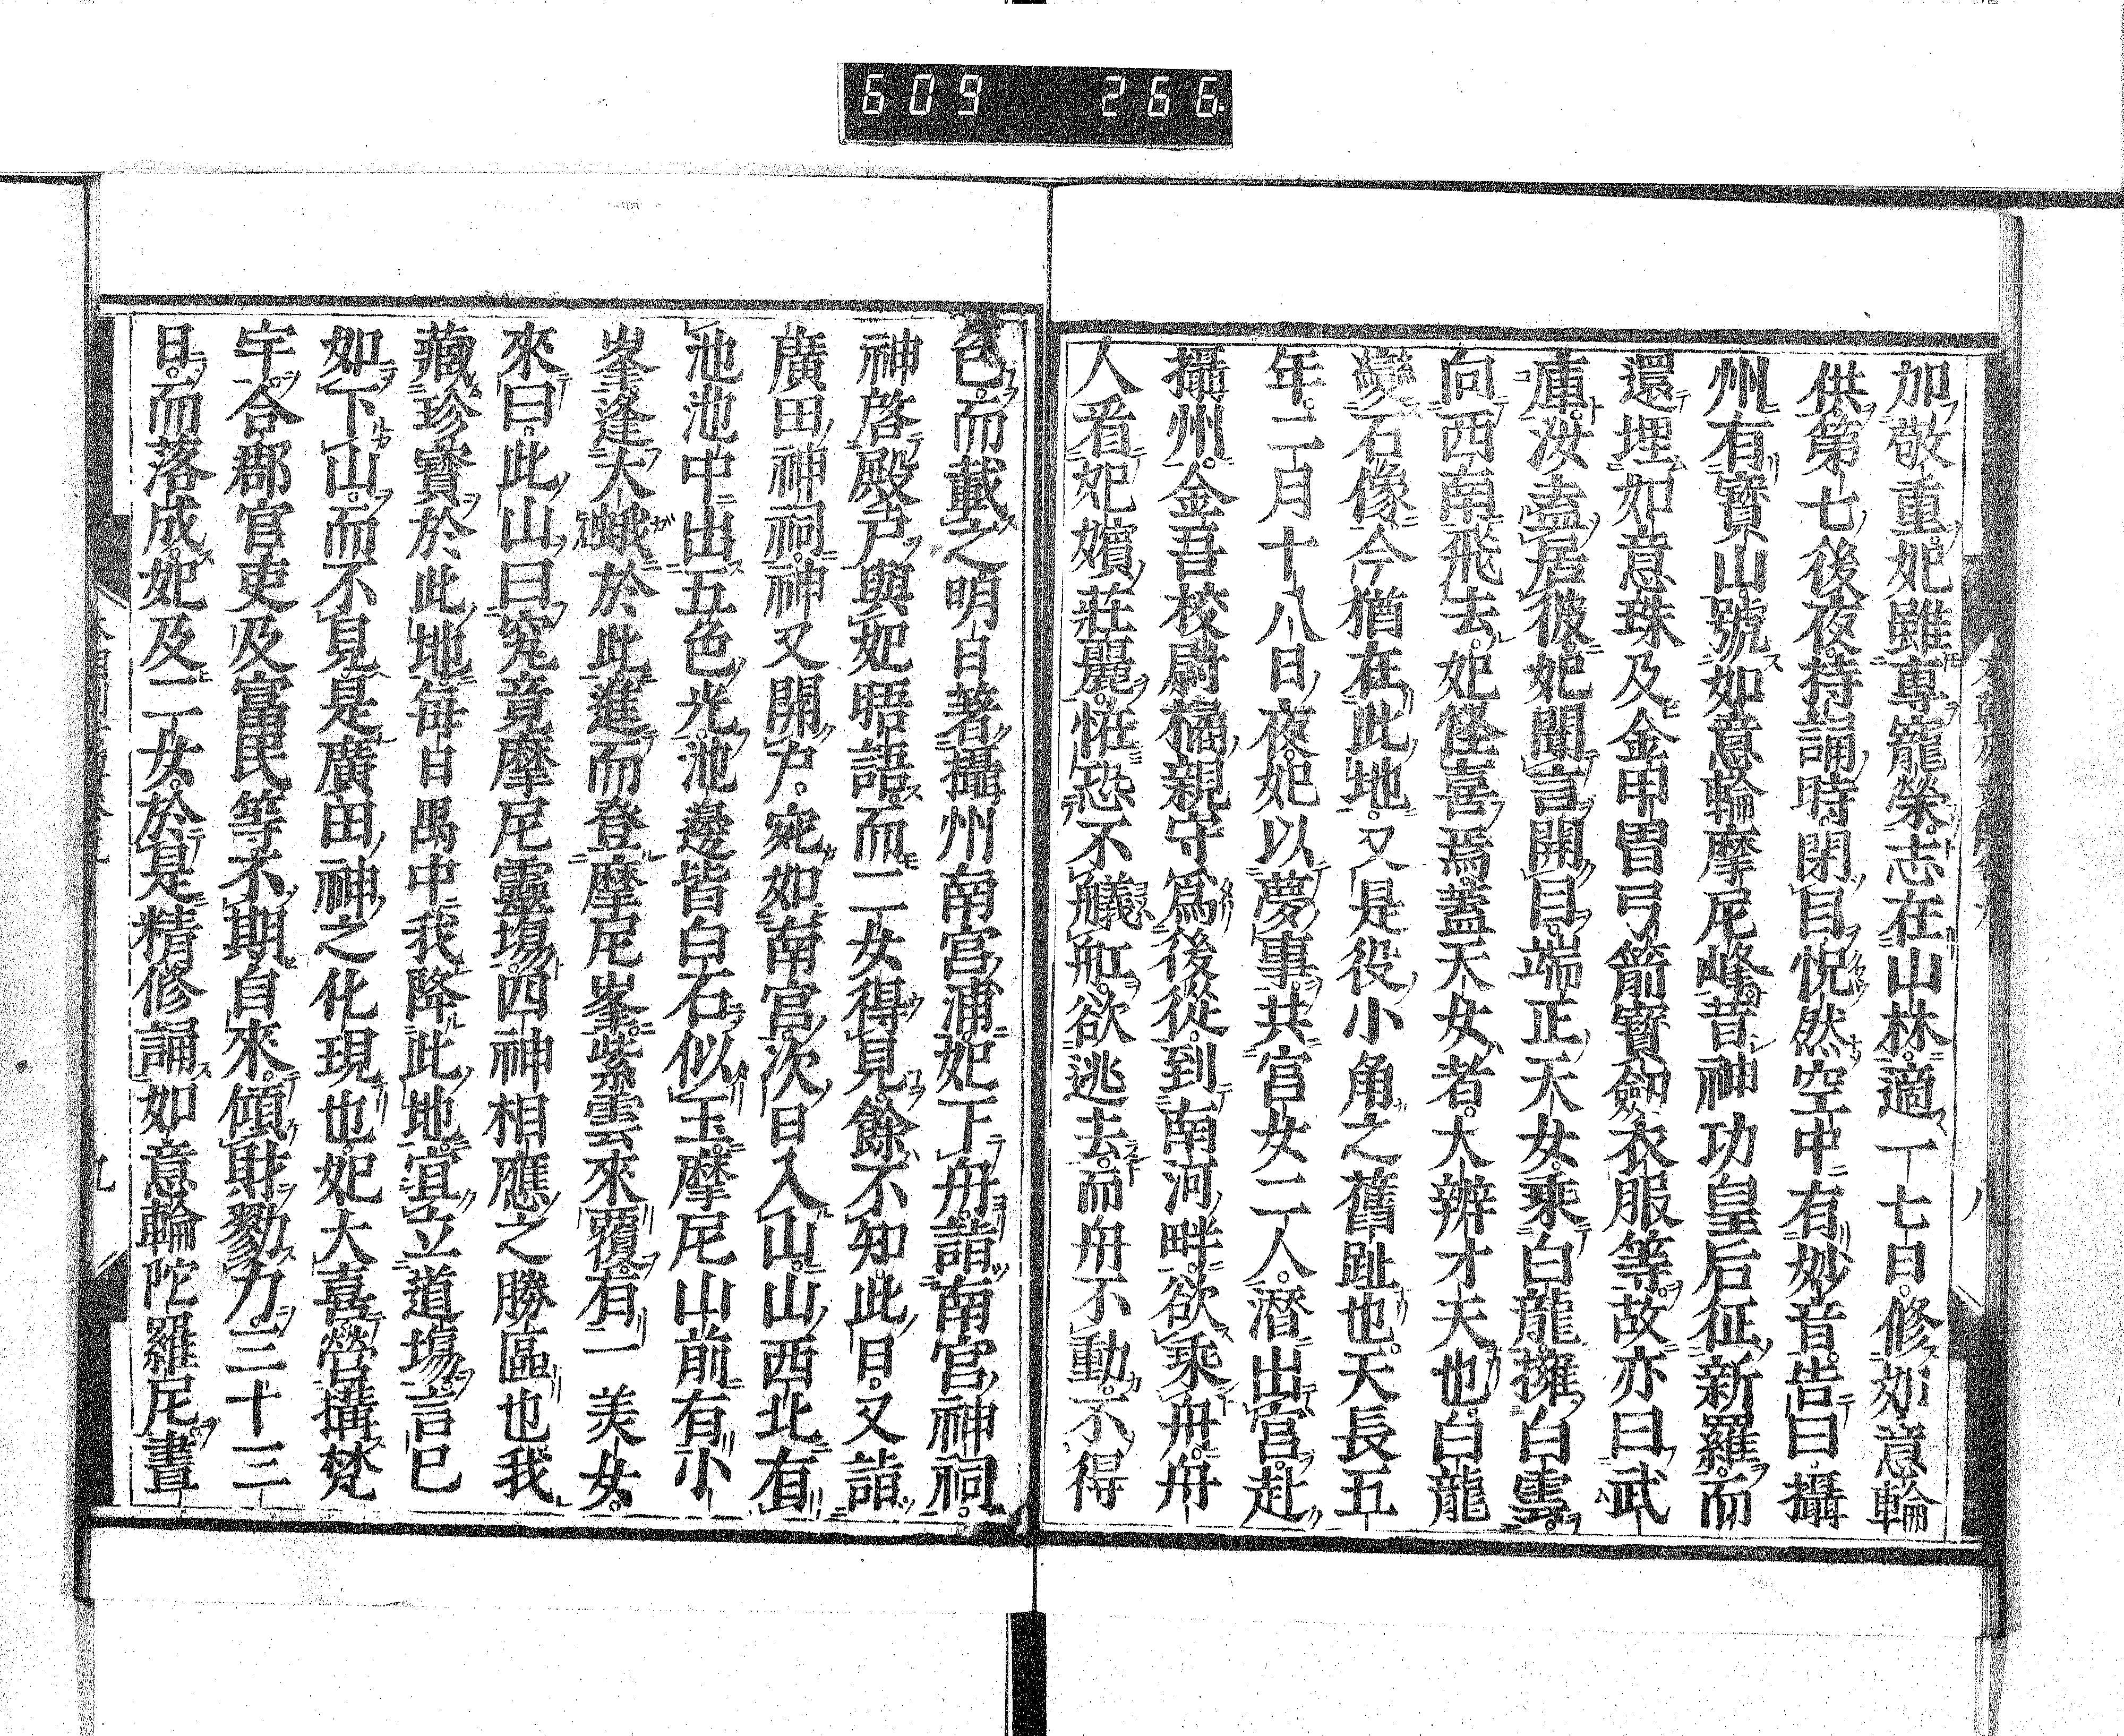 609 266
加敬重。妃雖專寵榮。志在山林。適一七日。修如意輪
供。第七後夜。持誦時。閉目恍然空中有妙音。告曰。攝
州有寶山。號如意輪摩尼峰。昔神功皇后征新羅。而
還埋如意珠及金甲冑弓箭寶劔衣服等。故亦曰武
庫。汝盍居彼。妃聞言開目。端正天女。乘白龍。擁白雲。
向西南飛去。妃怪喜焉。蓋天女者。大辨才天也。白龍
變石像今猶在此地。又是役小角之舊趾也。天長五
年。二月十八日。夜。妃以夢事。共宮女二人。潛出宮。赴
攝州。金吾校尉橘親守爲後從。到南河畔。欲乘舟。舟
人看妃嬪莊麗。恠恐不艤舡。欲逃去。而舟不動。不得
已。而載之。明日著攝州南宮浦。妃下舟。詣南宮神祠。
神啓殿戸。與妃晤語。而二女得見。餘不知。此日。又詣
廣田神祠。神又開戸。宛如南宮。次日入山。山西北有
池。池中出五色光。池邊皆白石似玉。摩尼山前有小
峯。逢大蛾於此。進而登摩尼峯。紫雲來覆。有一美女。
來曰。此山曰究竟摩尼靈場。四神相應之勝區也。我
藏珍寶於此地。每日禺中我降此地。宜立道場。言已
如下山。而不見。是廣田神之化現也。妃大喜。營搆梵
宇。合郡官吏及富民等。不期自來。傾財勠力。三十三
日。而落成。妃及二女。於是精修誦如意輪陀羅尼。晝
八
九